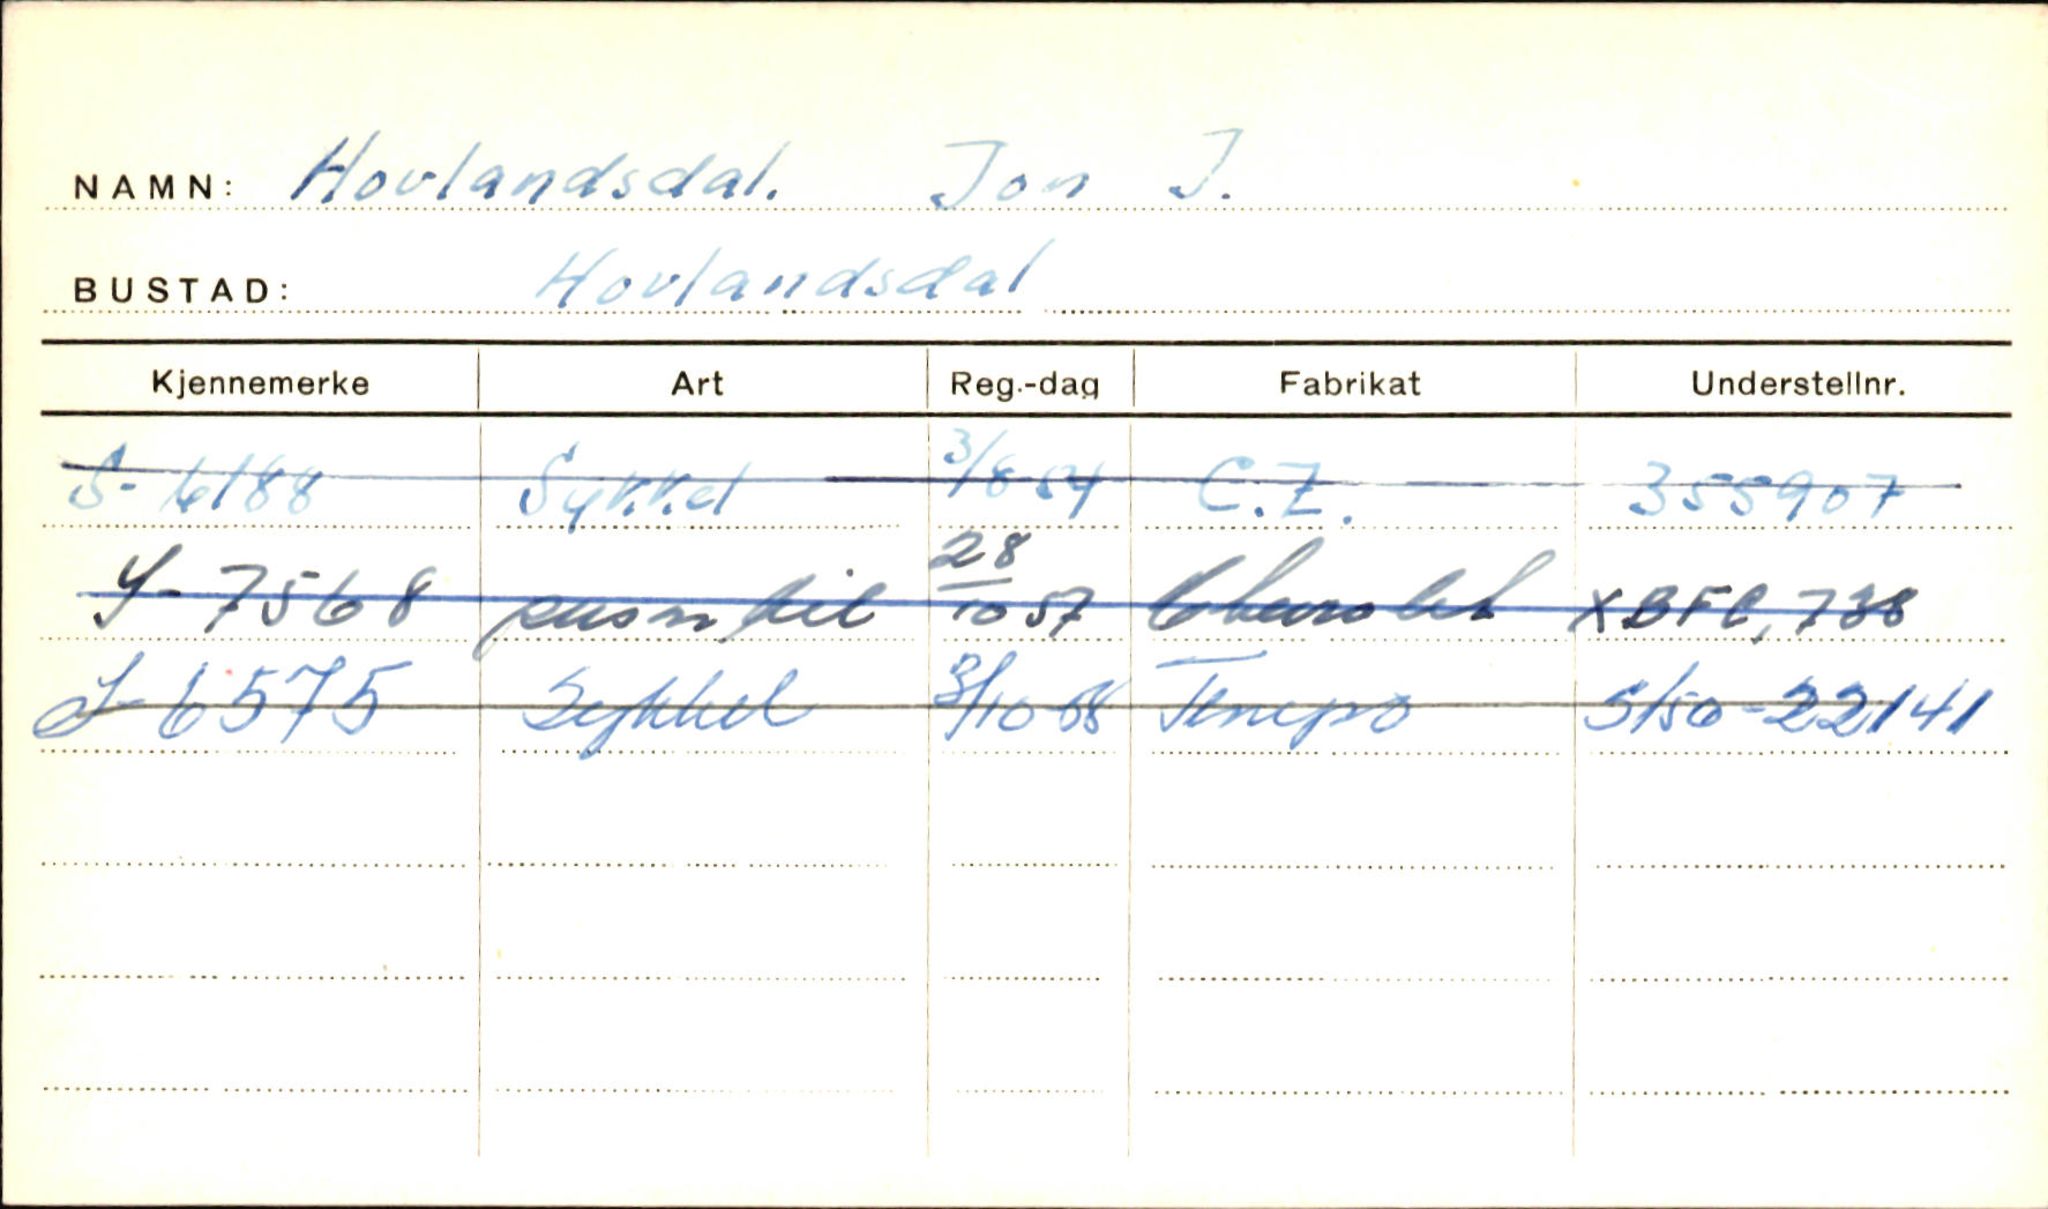 NAMN: Hovlandsdal. Jon J.
BUSTAD: Hovlandsdal
Kjennemerke Art Reg.-dag Fabrikat Understellnr.
S-6188 Sykkel 3/8-54 C.Z. 355907
S-7568 personbil 28/10 57 Chevrolet XBFC, 738
S-6575 Sykkel 3/10-58 Tempo S/50-22141